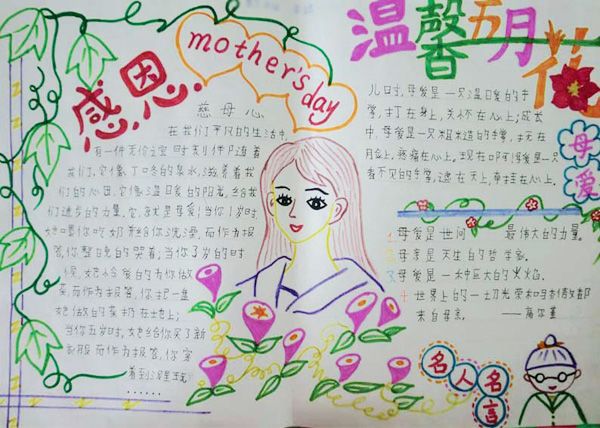 感恩
mother's day
温馨五月花
慈母心
在我们平凡的生活中,
有一件无价之宝时刻伴随着
我们,它像丁冬的泉水,滋养着我
们的心田,它像温暖的阳光,给我
们进步的力量,它就是母爱!当你1岁时
她喂你吃奶并给你洗澡,而作为报
答,你整晚的哭着;当你了3岁的时
候,她怜爱的为你做
菜,而作为报答,你把一盘
她做的菜扔在地上;
当你五岁时,她给你买了新
衣服,而作为报答,你穿
着到泥里玩
……
儿时,母爱是一只温暖的手
掌,打在身上,关怀在心上;成长
中,母爱是一只粗糙的手掌,抚在
脸上,疼痛在心上。现在,母爱是一只
看不见的手掌,遮在天上,牵挂在心上。
母爱
1.母爱是世间最伟大的力量。
2.母亲是天生的哲学家。
3.母爱是一种巨大的火焰。
4.世界上的一切光荣和骄傲都
来自母亲。——高尔基
名人名言